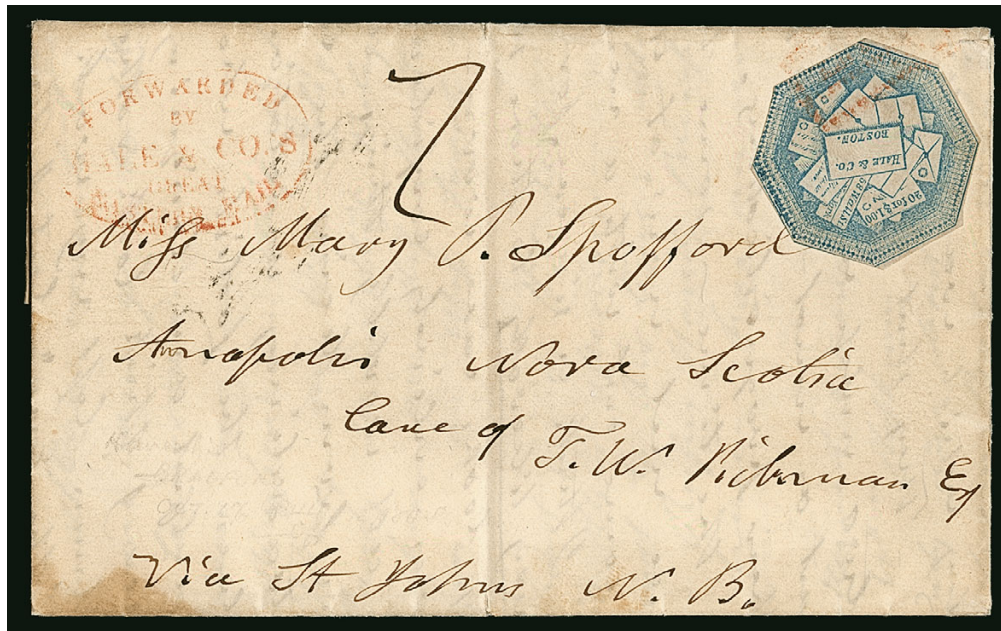 FORWARDED
BY
HALE & CO'S
GREAT
MAIL
7
HALE & CO.
BOSTON.
20 for $1.00
Miss Mary P. Spofford
Annapolis Nova Scotia
Care of
T. W. Esq
Via St Johns N. B.